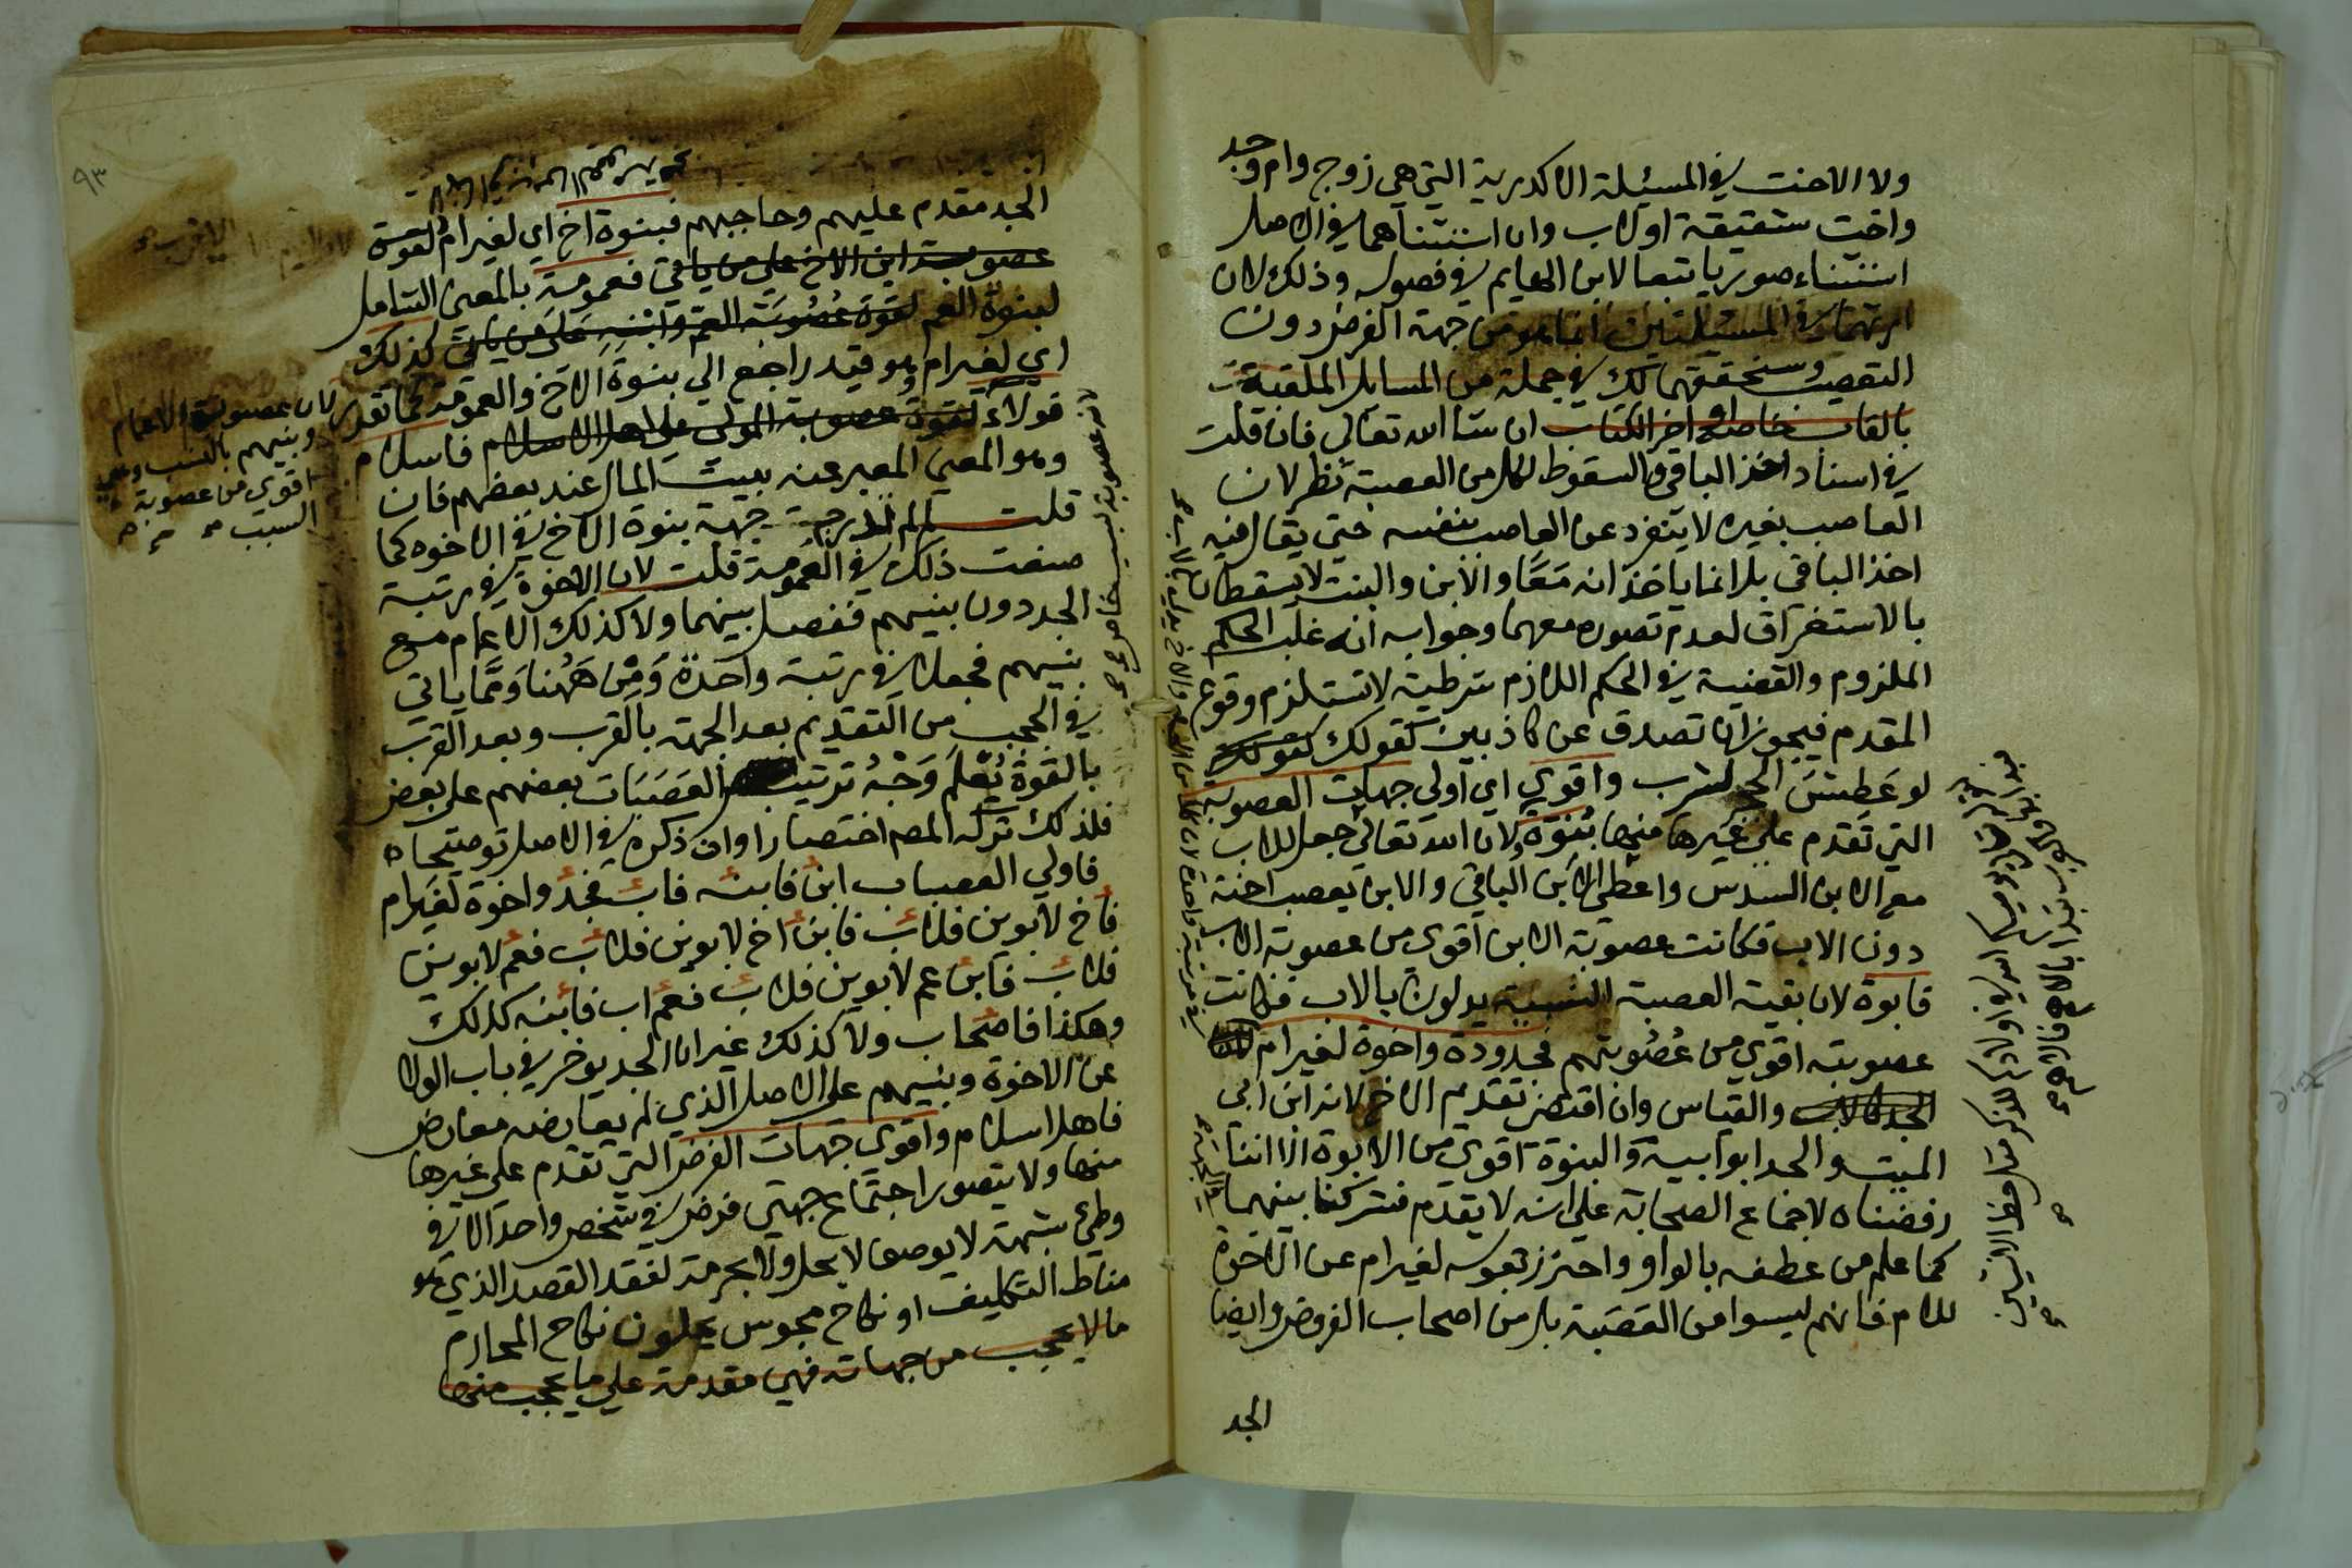 ولا الاخت في المسئلة الاكدرية التي هي زوج وام وجد
واخت شقيقة او لاب وان استثناهما في الاصل
استثناء صوريا تبعا لابن الهايم في فصوله وذلك لان
ارثهما في المسئلتين انما هو من جهة الفرض دون
التعصيب وسنحققهما لك في جملة من المسايل الملقبة
بالقاب خاصة اواخر الكتاب ان شا الله تعالى فان قلت
في اسناد اخذ الباقي والسقوط لكل من العصبة نظر لان
العاصب بغيره لا ينفرد عن العاصب بنفسه حتى يقال فيه
اخذ الباقي بل انما ياخذانه معا والابن والبنت لا يسقطان
بالاستغراق لعدم تصوره معهما وجوابه انه غلب الحكم
الملزوم والقضية في الحكم اللازم شرطية لا تستلزم وقوع
المقدم فيجوز ان تصدق عن كاذبين كقولك كقولك
لو عطش الحجر لشرب واقوى اي اولى جهات العصوبة
التي تقدم على غيرها منها بنوة لان الله تعالى جعل للاب
مع الابن السدس واعطى الابن الباقي والابن يعصب اخته
دون الاب فكانت عصوبة الابن اقوى من عصوبة الاب
فابوة لان بقية العصبة النسبية يدلون بالاب فكانت
عصوبته اقوى من عصوبتهم فجدودة واخوة لغير ام
الجد كالاب والقياس وان اقتضى تقديم الاخ لانه ابن ابي
الميت والجد ابو ابيه والبنوة اقوى من الابوة الا اننا
رفضناه لاجماع الصحابة على انه لا يقدم فشركنا بينهما
كما علم من عطفه بالواو واحترز بقوله لغير ام عن الاخوة
للام فانهم ليسوا من العصبة بل من اصحاب الفروض وايضا
الجد
٩٣
الجد مقدم عليهم وحاجبهم فبنوة اخ اي لغير ام لقوة
عصوبة ابن الاخ على من ياتي فعمومة بالمعنى الشامل
لبنوة العم لقوة عصوبة العم وابنه على من ياتي كذلك
اي لغير ام وهو قيد راجع الى بنوة الاخ والعمومة كما تقدر
فولاء لقوة عصوبة المولى على اهل الاسلام فاسلام
وهو المعنى المعبر عنه ببيت المال عند بعضهم فان
قلت لم لم تدرج جهة بنوة الاخ في الاخوه كما
صنعت ذلك في العمومة قلت لان الاخوة في رتبة
الجد دون بنيهم ففصل بينهما ولا كذلك الاعمام مع
بنيهم فجعلا في رتبة واحدة ومن ههنا ومما ياتي
في الحجب من التقديم بعد الجهة بالقرب وبعد القرب
بالقوة يعلم وجه ترتيب العصبات بعضهم على بعض
فلذلك تركه المصـ اختصارا وان ذكره في الاصل توضيحا ه
فاولى العصبات ابن فابنه فاب فجد واخوة لغير ام
فاخ لابوين فلاب فابن اخ لابوين فلاب فعم لابوين
فلاب فابن عم لابوين فلاب فعم اب فابنه كذلك
وهكذا فاصحاب ولا كذلك غير ان الجد يوخر في باب الولا
عن الاخوة وبنيهم على الاصل الذي لم يعارضه معارض
فاهل اسلام واقوى جهات الفرض التي تقدم على غيرها
منها ولا يتصور اجتماع جهتي فرض في شخص واحد الا في
وطئ بشبهة لا يوصف لا بحل ولا بحرمة لفقد القصد الذي هو
مناط التكليف او نكاح مجوس يحلون نكاح المحارم
ما لا يحجب من جهاته فهي مقدمة على ما يحجب منها
لان عصوبة الاعمام
وبنيهم بالنسب وهي
اقوى من عصوبة
السبب